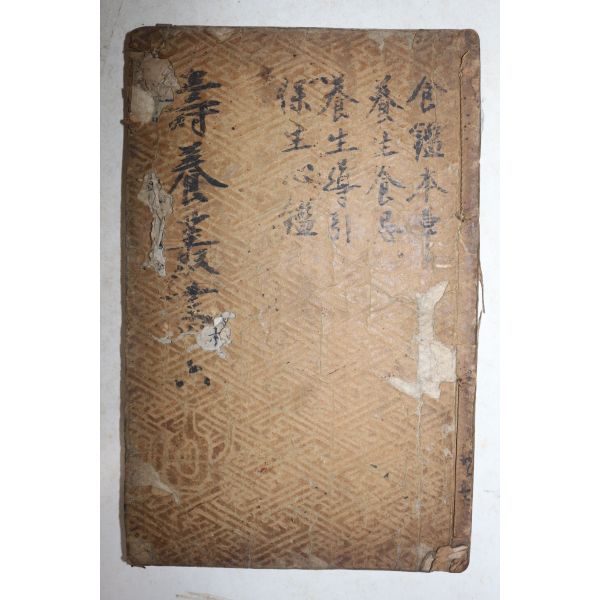 食鑑本草
養生食忌
養生導引
保生心鑑
壽養叢書 六